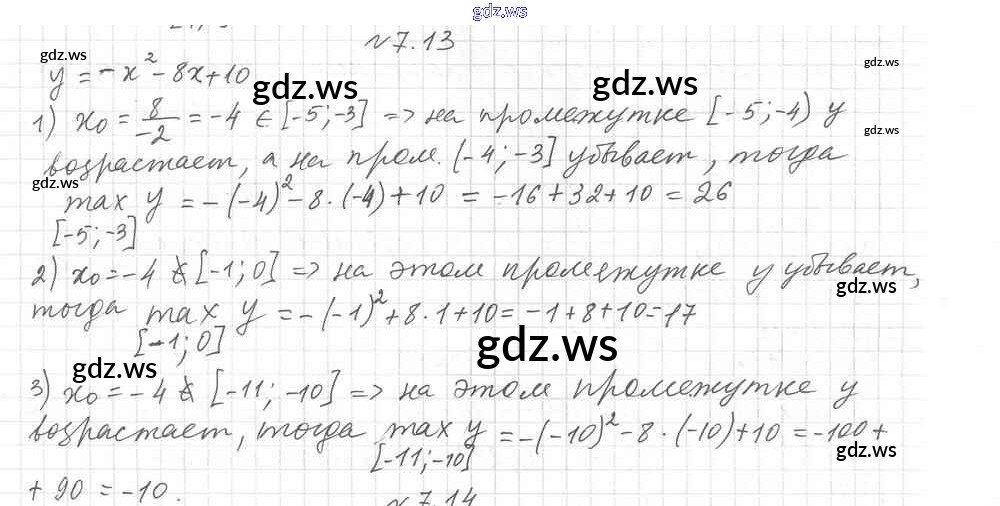 gdz.ws
№7.13
gdz.ws
y = -x² - 8x + 10
gdz.ws
gdz.ws
gdz.ws
1) x₀ = 8/-2 = -4 ∈ [-5; -3] => на промежутке [-5; -4) y
gdz.ws
возрастает, а на пром. (-4; -3] убывает, тогда
gdz.ws
max y = -(-4)² - 8·(-4) + 10 = -16 + 32 + 10 = 26
[-5; -3]
2) x₀ = -4 ∉ [-1; 0] => на этом промежутке y убывает,
gdz.ws
тогда max y = -(-1)² + 8·1 + 10 = -1 + 8 + 10 = 17
[-1; 0]
gdz.ws
gdz.ws
3) x₀ = -4 ∉ [-11; -10] => на этом промежутке y
возрастает, тогда max y = -(-10)² - 8·(-10) + 10 = -100 +
[-11; -10]
gdz.ws
+ 90 = -10.
№7.14